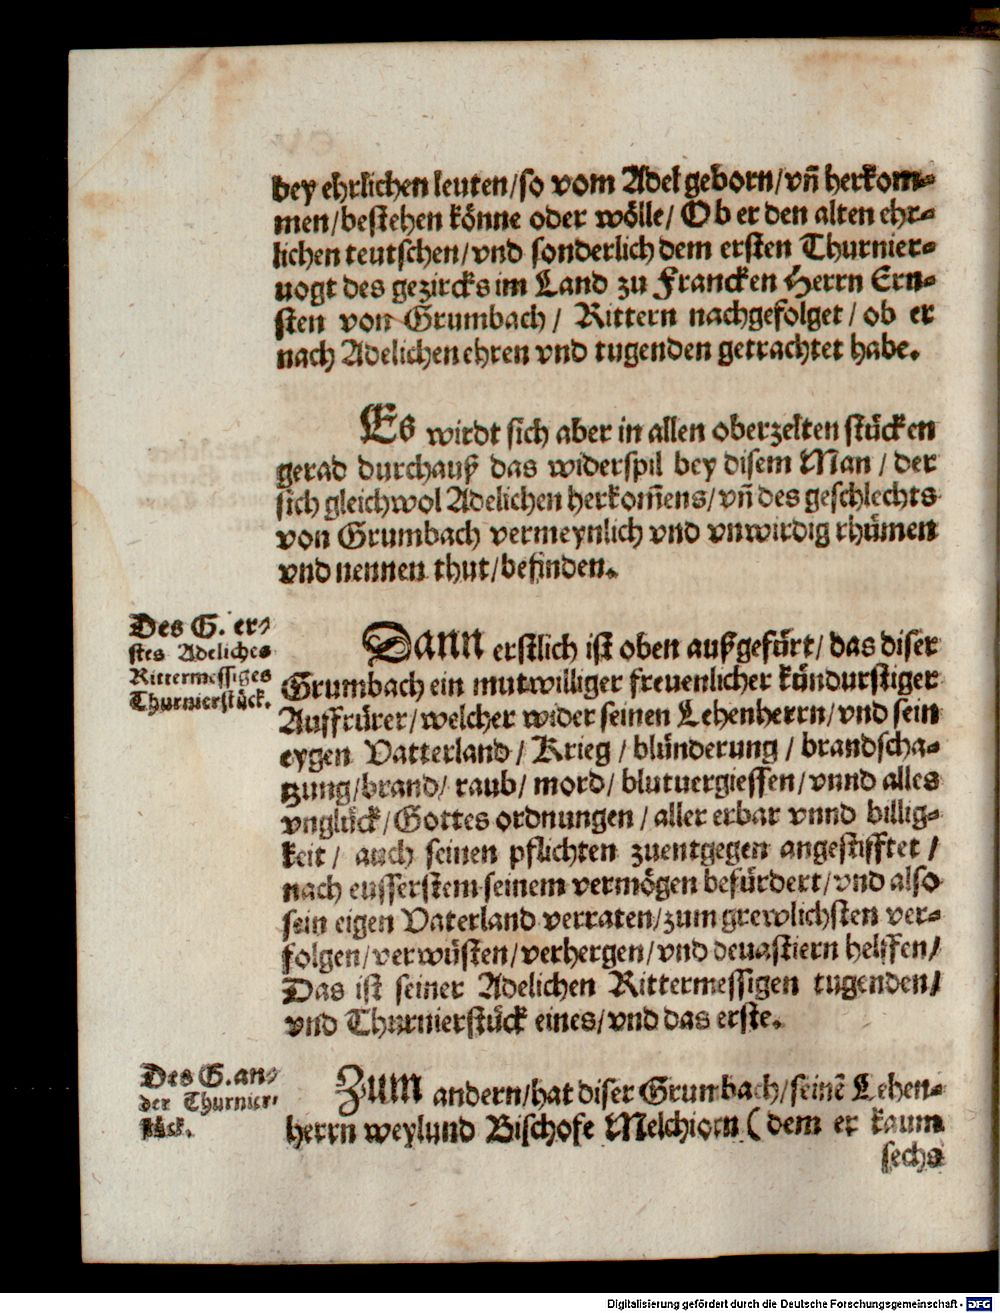 bey ehrlichen leuten/so vom Adel geborn/vn̄ herkom-
men/bestehen könne oder wölle/ Ob er den alten ehr-
lichen teutschen/vnd sonderlich dem ersten Thurnier-
uogt des gezircks im Land zu Francken Herrn Ern-
sten von Grumbach/ Rittern nachgefolget/ ob er
nach Adelichen ehren vnd tugenden getrachtet habe.
Es wirdt sich aber in allen oberzelten stücken
gerad durchauß das widerspil bey disem Man/ der
sich gleichwol Adelichen herkom̄ens/vn̄ des geschlechts
von Grumbach vermeynlich vnd vnwirdig rhümen
vnd nennen thut/befinden.
Des G. er-
stes Adeliches
Rittermessiges
Thurnierstück.
Dann erstlich ist oben außgefürt/ das diser
Grumbach ein mutwilliger freuenlicher kündurstiger
Auffrürer/welcher wider seinen Lehenherrn/vnd sein
eygen Vatterland/ Krieg/ blünderung/ brandscha-
tzung/brand/ raub/ mord/ blutuergiessen/vnnd alles
vnglück/Gottes ordnungen/ aller erbar vnnd billig-
keit/ auch seinen pflichten zuentgegen angestifftet/
nach eusserstem seinem vermögen befürdert/vnd also
sein eigen Vaterland verraten/zum grewlichsten ver-
folgen/verwüsten/verhergen/vnd deuastiern helffen/
Das ist seiner Adelichen Rittermessigen tugenden/
vnd Thurnierstück eines/vnd das erste.
Des G. an-
der Thurnier-
stück.
Zum andern/hat diser Grumbach/seinē Lehen-
herrn weylund Bischofe Melchiorn (dem er kaum
sechs
Digitalisierung gefördert durch die Deutsche Forschungsgemeinschaft - DFG